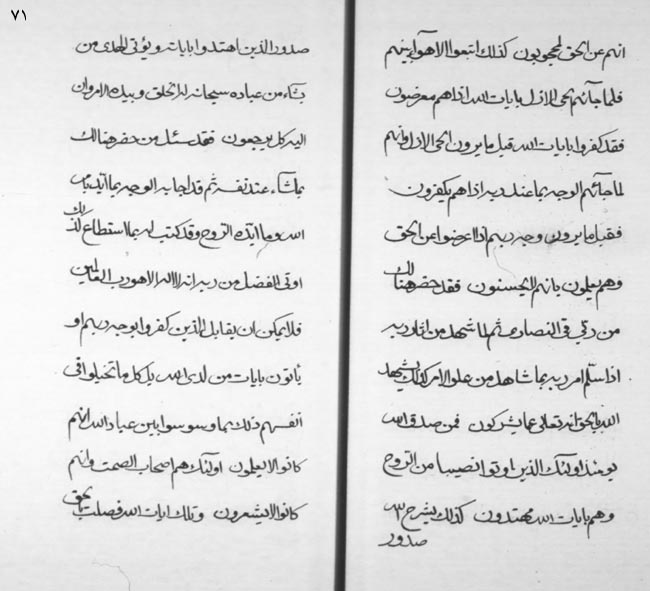 ٧١
انهم عن الحق لمحجوبون كذلك اتبعوا الاهواء بينهم
فلما جآئهم بحى الازل بايات الله اذا هم معرضون
فقد كفروا بايات الله قبل ما يرون الحى الازل وانهم
لما جآئهم الوجه بما عند ربه اذا هم يكفرون
فقبل ما يرون وجه ربهم اذا اعرضوا عن الحق
وهم يعلون بانهم لا يحسنون فقد حضر هنالك
من رقي فى النصارى ثم لما شهد من اثار ربه
اذا سلم امر ربه بما شاهد من علو الامر كذلك يشهد
الله بالحق انه تعالى عما يشركون فمن صدق الله
يومئذ اولئك الذين اوتوا نصيبا من الروح
وهم بايات الله مهتدون كذلك يشرح الله
صدور
صدور الذين اهتدوا بايات ربه ويؤتى الهدى من
يشآء من عباده سبحانه له الخلق وبيده الامر وان
اليه كل يرجعون فقد سئل من حضر هنالك
بما شآء عند نفسه ثم قد اجابه الوجه بما اتيه من
الله وما ايده الروح وقد كتب له بما استطاع كذلك
اوتى الفضل من ربه انه لا اله الا هو رب العالمين
فلا يمكن ان يقابل الذين كفروا بوجه ربهم او
يأتون بايات من لدى الله بل كل ما تخيلوا فى
انفسهم ذلك بما وسوسوا بين عباد الله انهم
كانوا لا يعلون اولئك هم اصحاب الصمت وانهم
كانوا لا يشعرون وتلك ايات الله فصلت بالحق